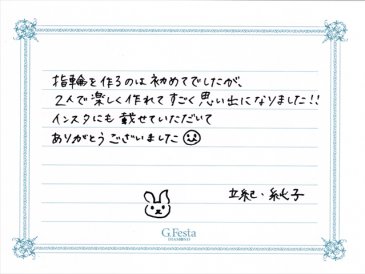 指輪を作るのは初めてでしたが、
2人で楽しく作れてすごく思い出になりました!!
インスタにも載せていただいて
ありがとうございました
紀・純子
G.Festa
DIAMOND